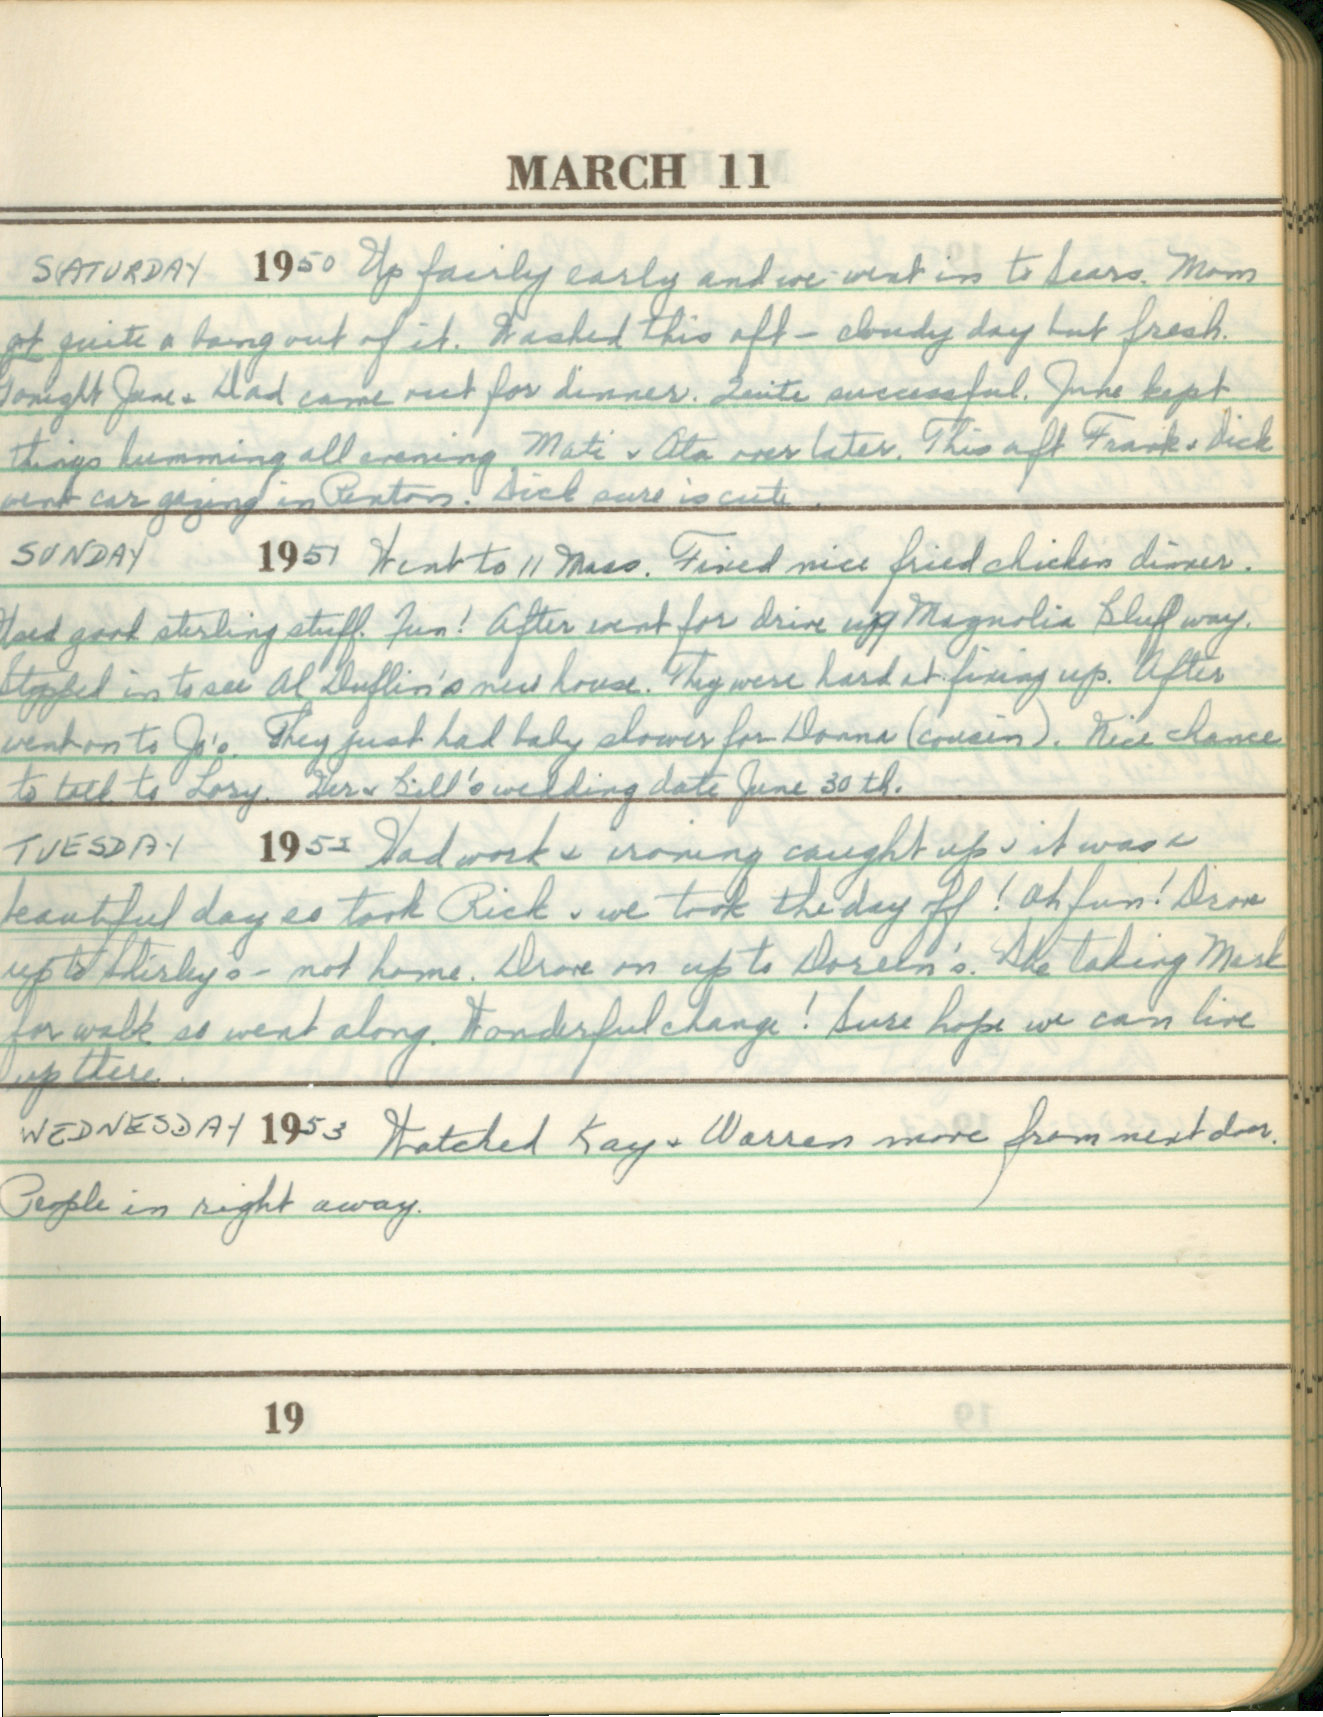 MARCH 11
SATURDAY 1950 Up fairly early and we went in to Sears. Mom
got quite a bang out of it. Washed this aft - cloudy day but fresh.
Tonight June & Dad came out for dinner. Quite successful. June kept
things humming all evening Mati & Ata over later. This aft Frank & Dick
went car gazing in Renton. Dick sure is cute.
SUNDAY 1951 Went to 11 Mass. Fixed nice fried chicken dinner.
Used good sterling stuff. Fun! After went for drive up Magnolia Bluff way.
Stopped in to see Al Duflin's new house. They were hard at fixing up. After
went on to Jo's. They just had baby shower for Donna (cousin). Nice chance
to talk to Lory. Her & Bill's wedding date June 30th.
TUESDAY 1952 Had work & ironing caught up & it was a
beautiful day so took Rick & we took the day off! Oh fun! Drove
up to Shirley's - not home. Drove on up to Doreen's. She taking Mark
for walk so went along. Wonderful change! Sure hope we can live
up there.
WEDNESDAY 1953 Watched Kay & Warren move from next door.
People in right away.
19